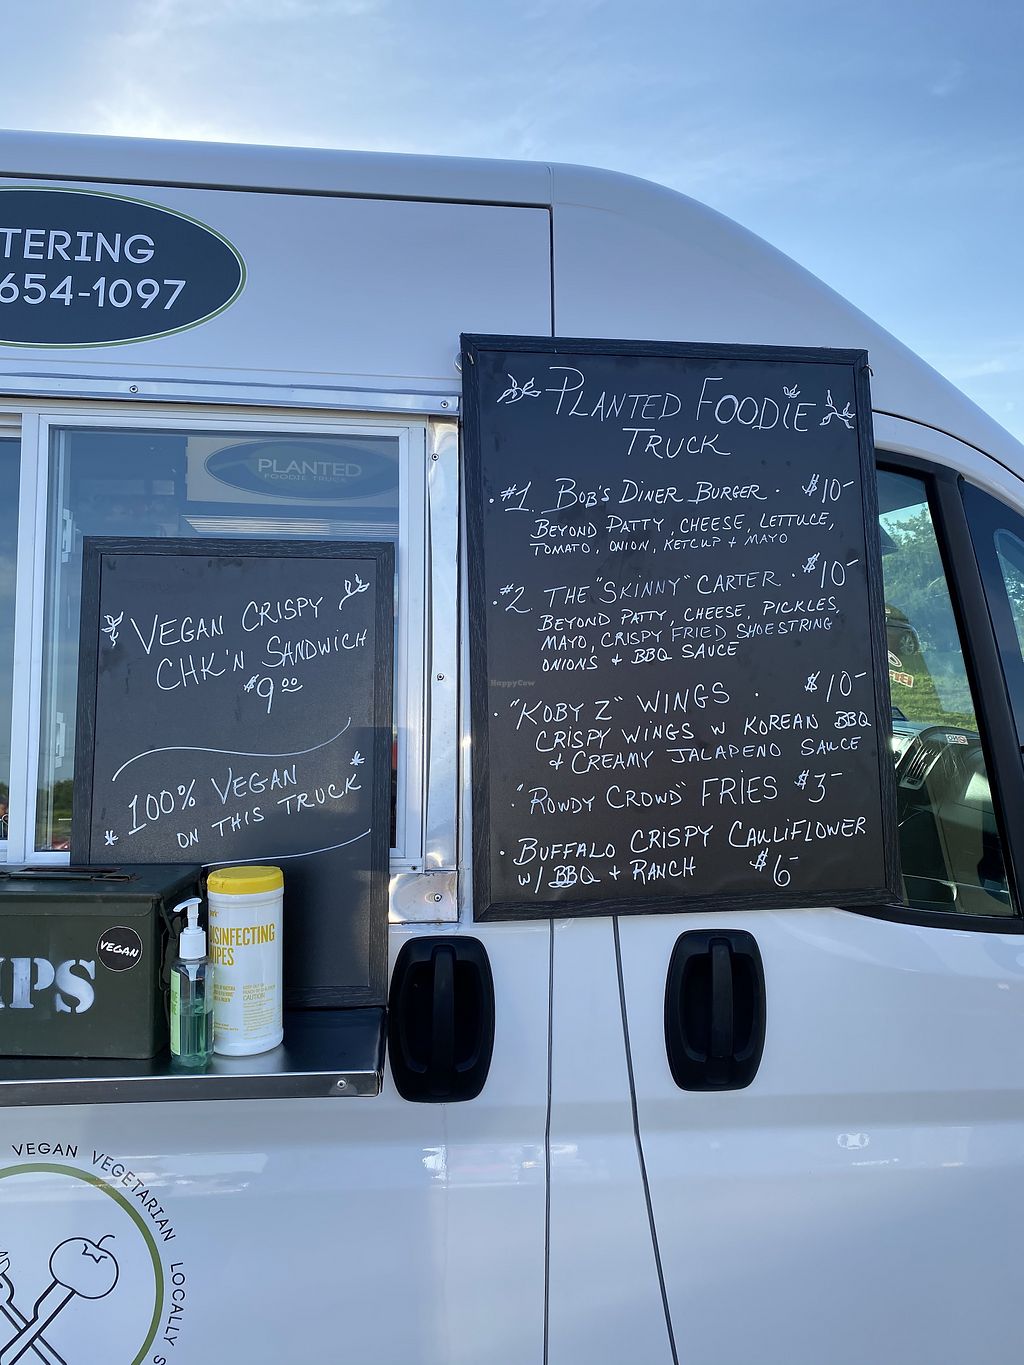 TERING
654-1097
PLANTED
FOODIE TRUCK
VEGAN CRISPY
CHK'N SANDWICH
$9.00
100% VEGAN
ON THIS TRUCK
PLANTED FOODIE
TRUCK
#1. BOB'S DINER BURGER · $10-
BEYOND PATTY, CHEESE, LETTUCE,
TOMATO, ONION, KETCUP + MAYO
#2 THE "SKINNY" CARTER · $10-
BEYOND PATTY, CHEESE, PICKLES,
MAYO, CRISPY FRIED SHOESTRING
ONIONS + BBQ SAUCE
· "KOBY Z" WINGS · $10-
CRISPY WINGS W KOREAN BBQ
+ CREAMY JALAPENO SAUCE
· "ROWDY CROWD" FRIES $3-
· BUFFALO CRISPY CAULIFLOWER
W/ BBQ + RANCH $6-
HappyCow
IPS
VEGAN
DISINFECTING
WIPES
VEGAN VEGETARIAN LOCALLY S